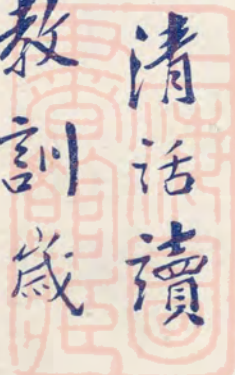 清話讀
教訓歲